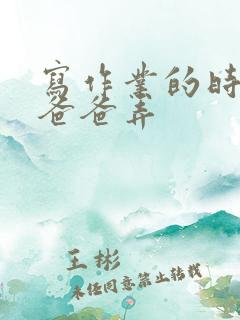 寫作業的時
爸爸弄
王彬
未经同意禁止转载